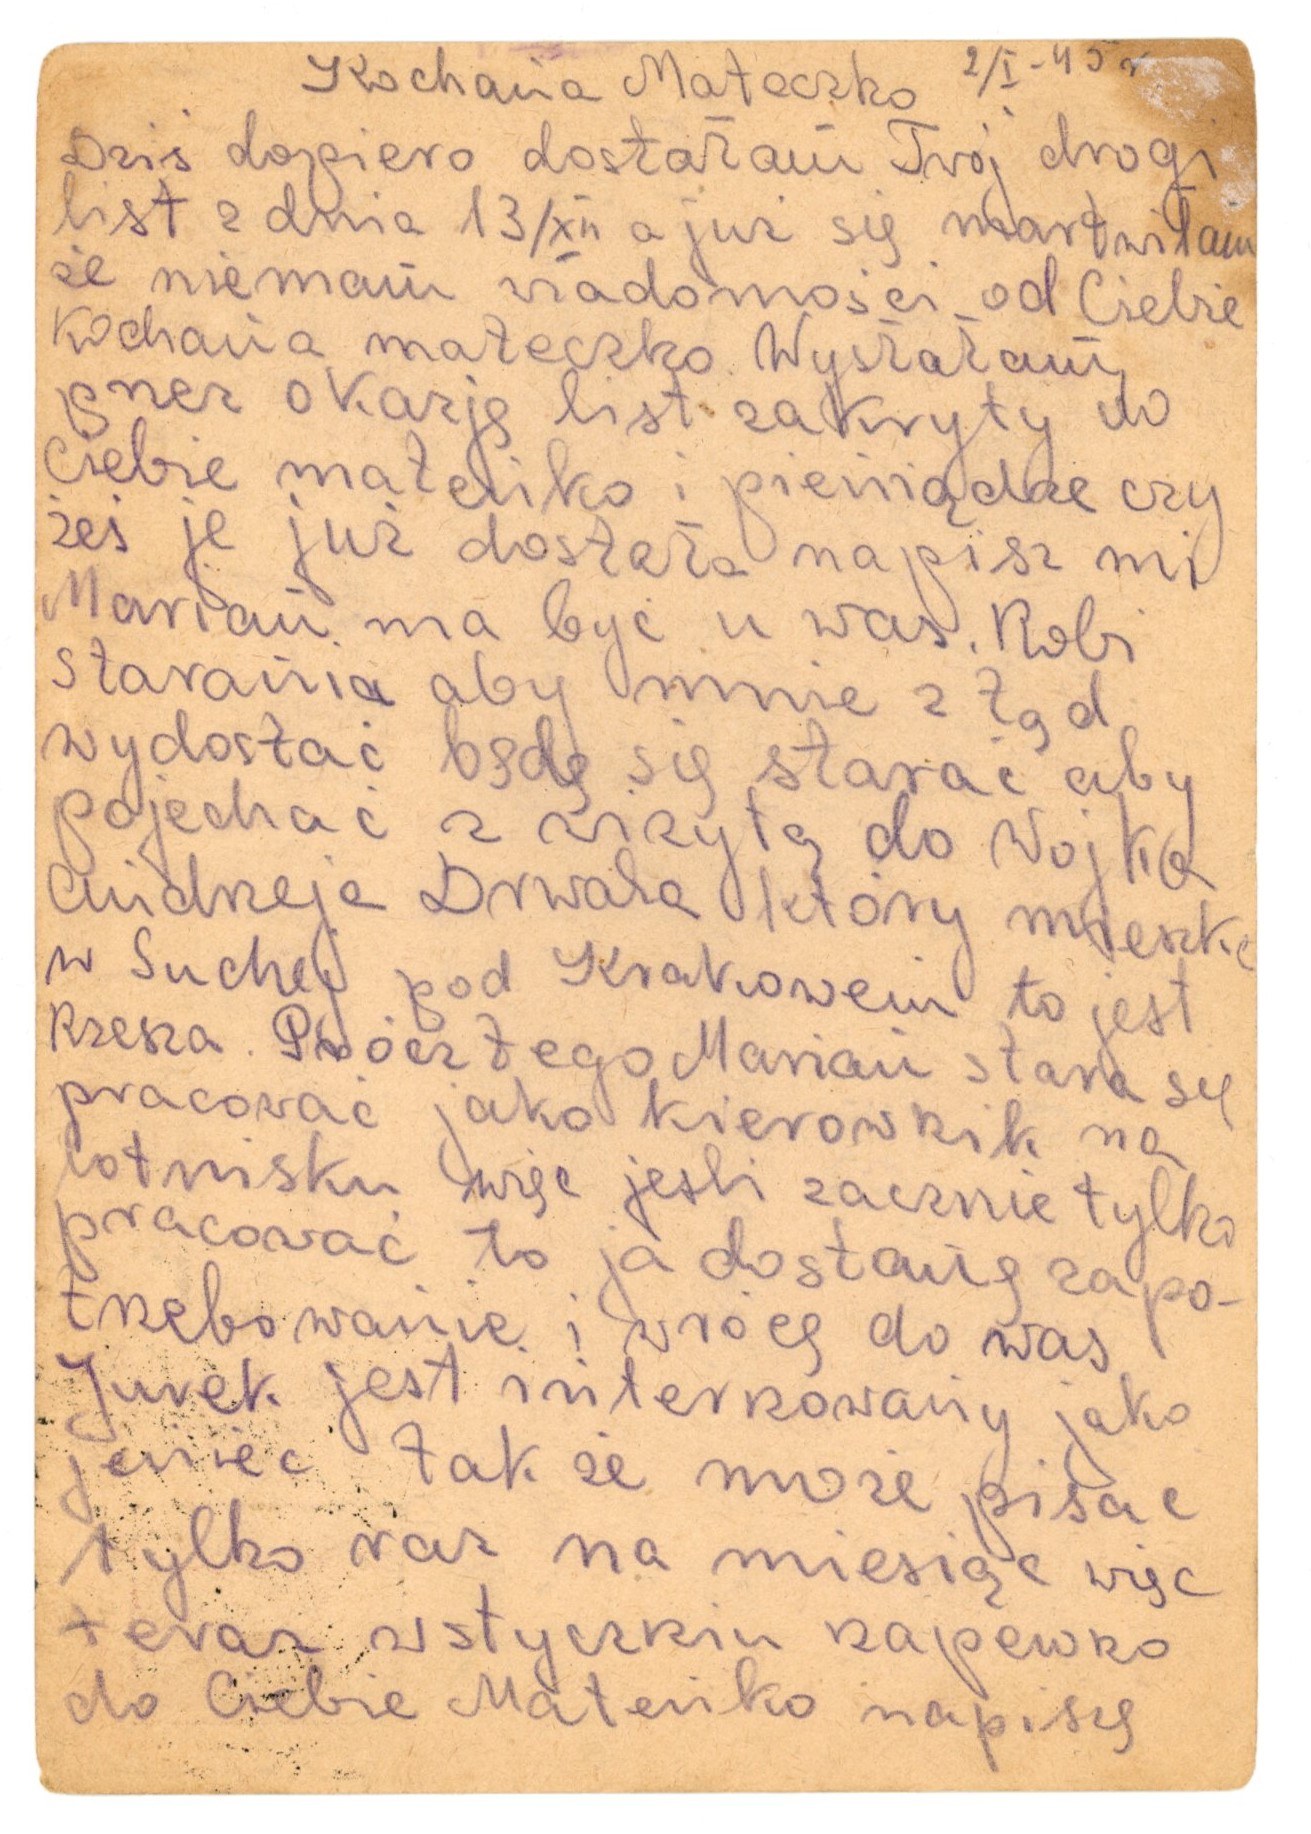 Kochana Mateczko 2/I-45 r
Dziś dopiero dostałam Twój drogi
list z dnia 13/XII a już się martwiłam
że niemam wiadomości od Ciebie
Kochana mateczko. Wysłałam
przez okazję list zakryty do
Ciebie mateńko i pieniądze czy
żeś je już dostała napisz mi
Marian ma być u was. Robi
starania aby mnie z tąd
wydostać będę się starać aby
pojechać z wizytą do Wojka
Andrzeja Drwala który mieszka
w Suchej pod Krakowem to jest
Rzesza. Prócz tego Marian stara się
pracować jako kierownik na
lotnisku więc jeśli zacznie tylko
pracować to ja dostanę zapo-
trzebowanie i wrócę do was
Jurek jest internowany jako
jeniec tak że może pisac
tylko raz na miesiąc więc
teraz w styczniu napewno
do Ciebie Mateńko napiszę